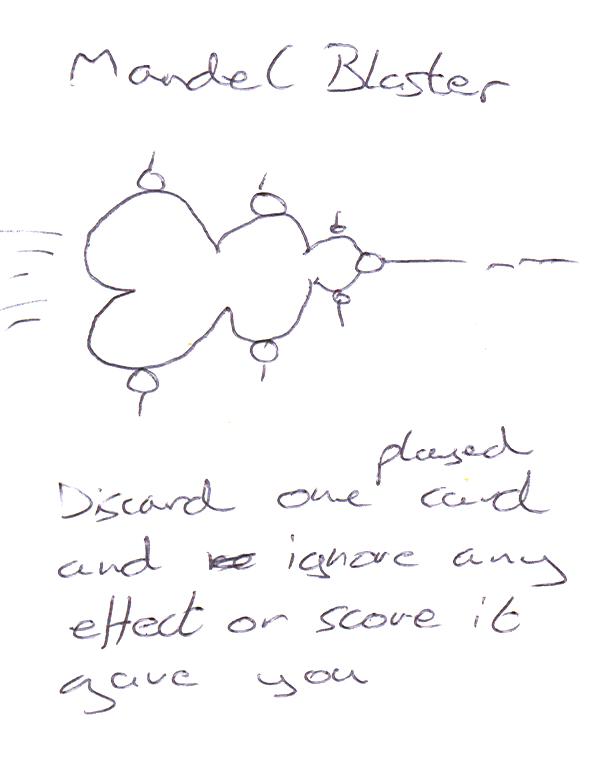 Mandel Blaster
played
Discard one card
and ignore any
effect or score it
gave you